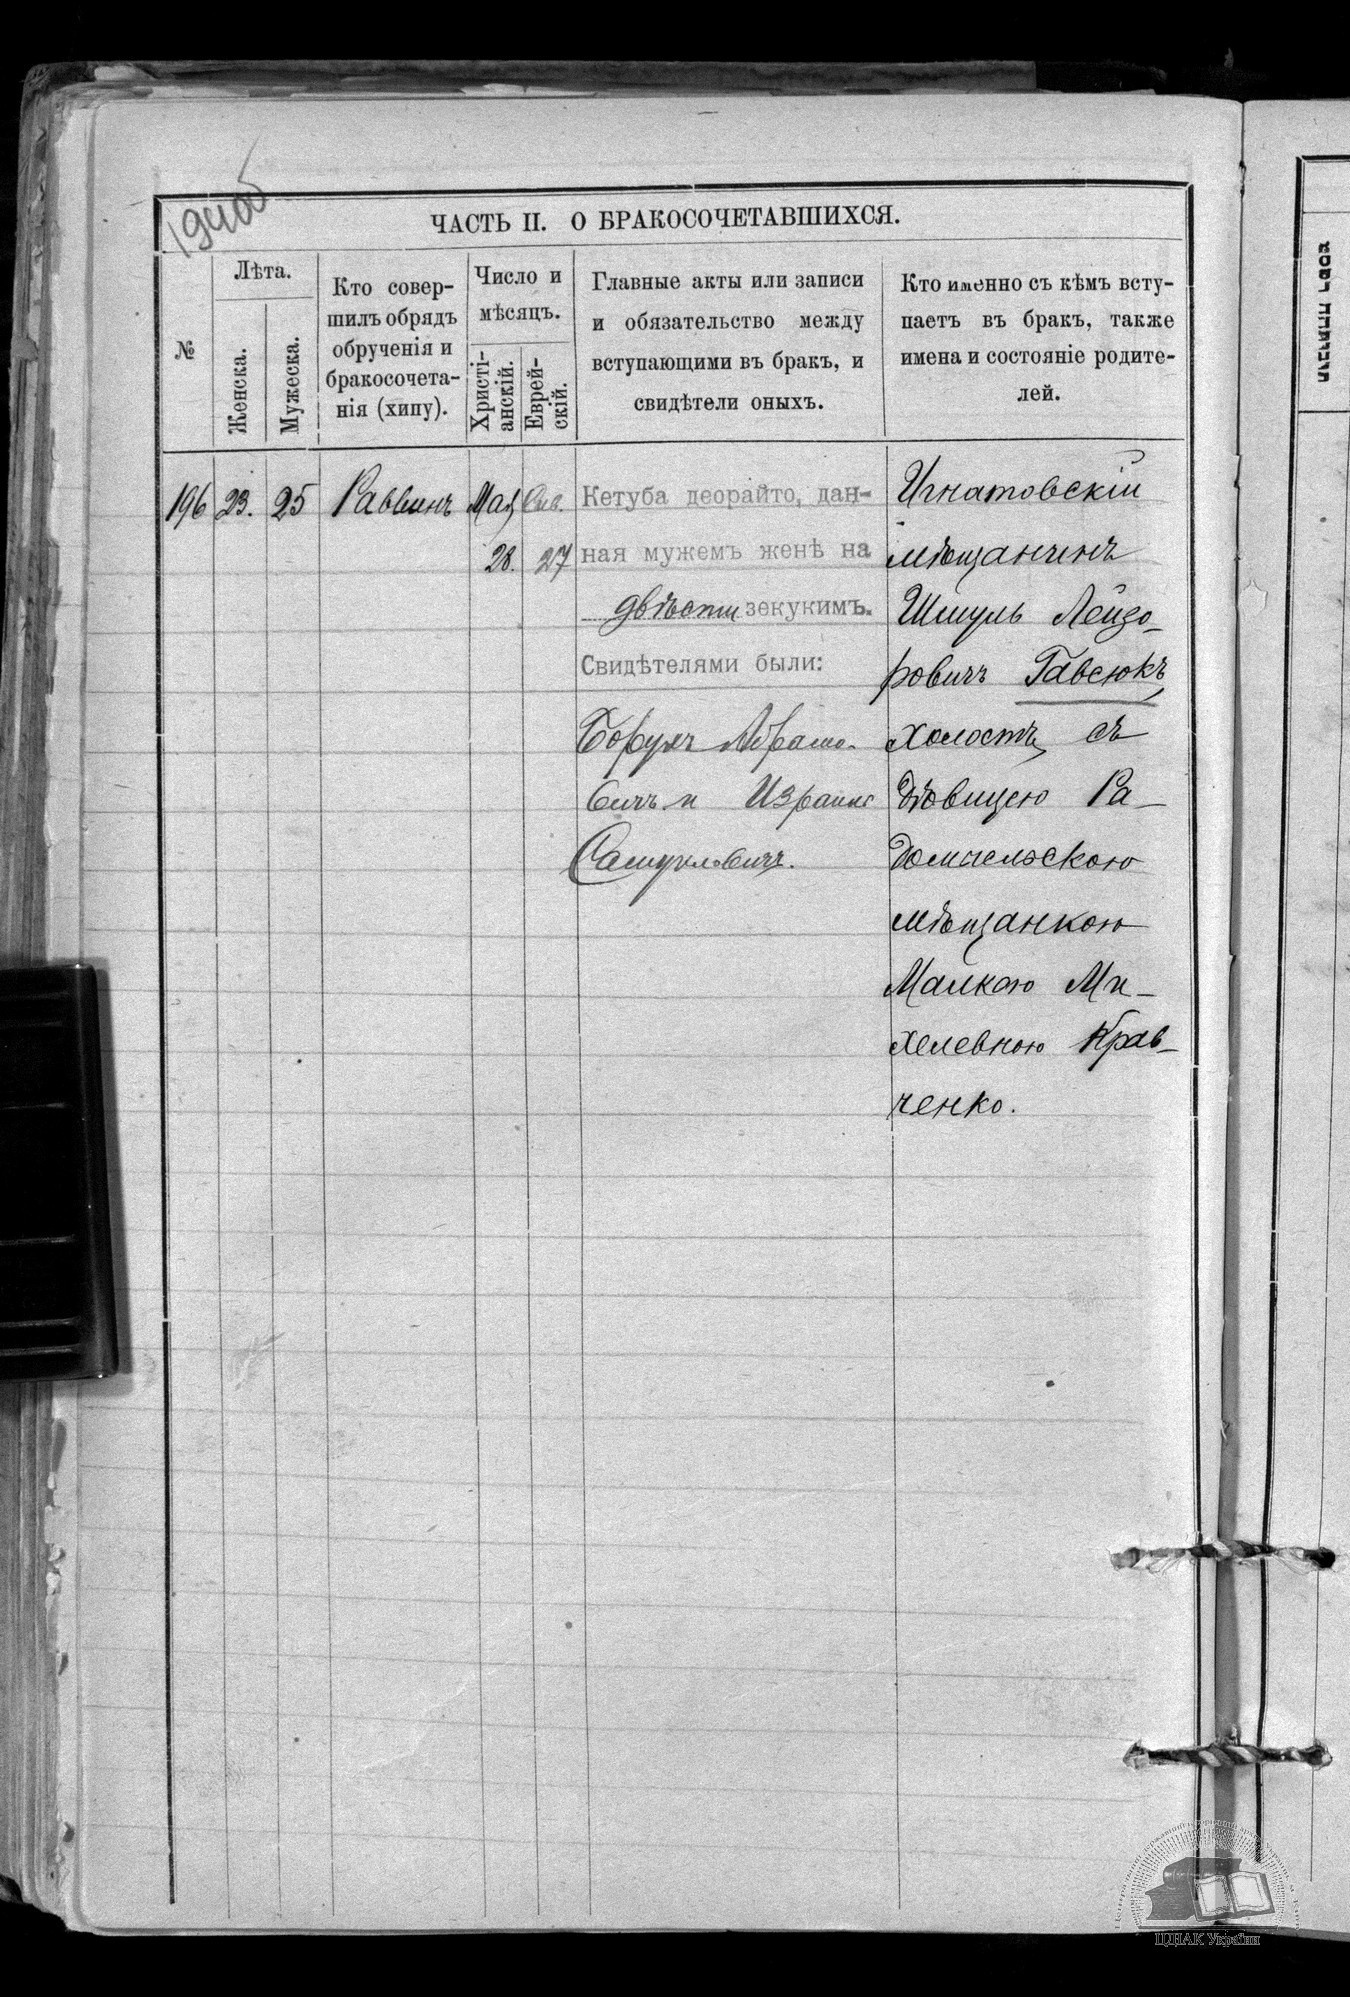 194об
ЧАСТЬ II. О БРАКОСОЧЕТАВШИХСЯ.
№
Лѣта.
Женска.
Мужеска.
Кто совер-
шилъ обрядъ
обрученія и
бракосочета-
нія (хипу).
Число и
мѣсяцъ.
Христі-
анскій.
Еврей-
скій.
Главные акты или записи
и обязательство между
вступающими въ бракъ, и
свидѣтели оныхъ.
Кто именно съ кѣмъ всту-
паетъ въ бракъ, также
имена и состояніе родите-
лей.
196
23.
25
Раввинъ
Мая
28.
Сив.
27
Кетуба деорайто, дан-
ная мужемъ женѣ на
двѣсти зекукимъ.
Свидѣтелями были:
Борухъ Абрамо-
вичъ и Израиль
Самуиловичъ.
Игнатовскій
мѣщанинъ
Шмуль Лейзо-
ровичъ Гавсюкъ,
холостъ, съ
дѣвицею Ра-
домысльскою
мѣщанкою
Малкою Ми-
хелевною Крав-
ченко.
ЦДІАК України